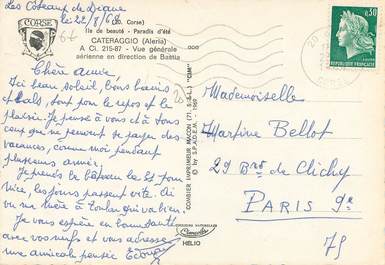 Les Coteaux de Diane
le 22/8/69
CORSE
(St. Corse)
Ile de beauté - Paradis d'été
CATERAGGIO (Aleria)
A Ci. 215-87 - Vue générale
aérienne en direction de Bastia
Chère amie,
Ici beau soleil, bons bains
et bals, tout pour le repos et le
plaisir. Je pense à vous et à tous
ceux qui ne peuvent se payer des
vacances, comme moi pendant
plusieurs années.
Je prends le bateau le 25 pour
Nice, les jours passent vite. Ai
vu ma mère à Toulon qui va bien.
Je vous espère en bonne santé
avec vos nerfs et vous adresse
une amicale pensée
COMBIER IMPRIMEUR MACON (71. S.-&-L.) "CIM"
© by S.P.A.D.E.M. 1969
HÉLIO
0,30
REPUBLIQUE FRANCAISE
Mademoiselle
Martine Bellot
29 Brd de Clichy
PARIS 9e
75